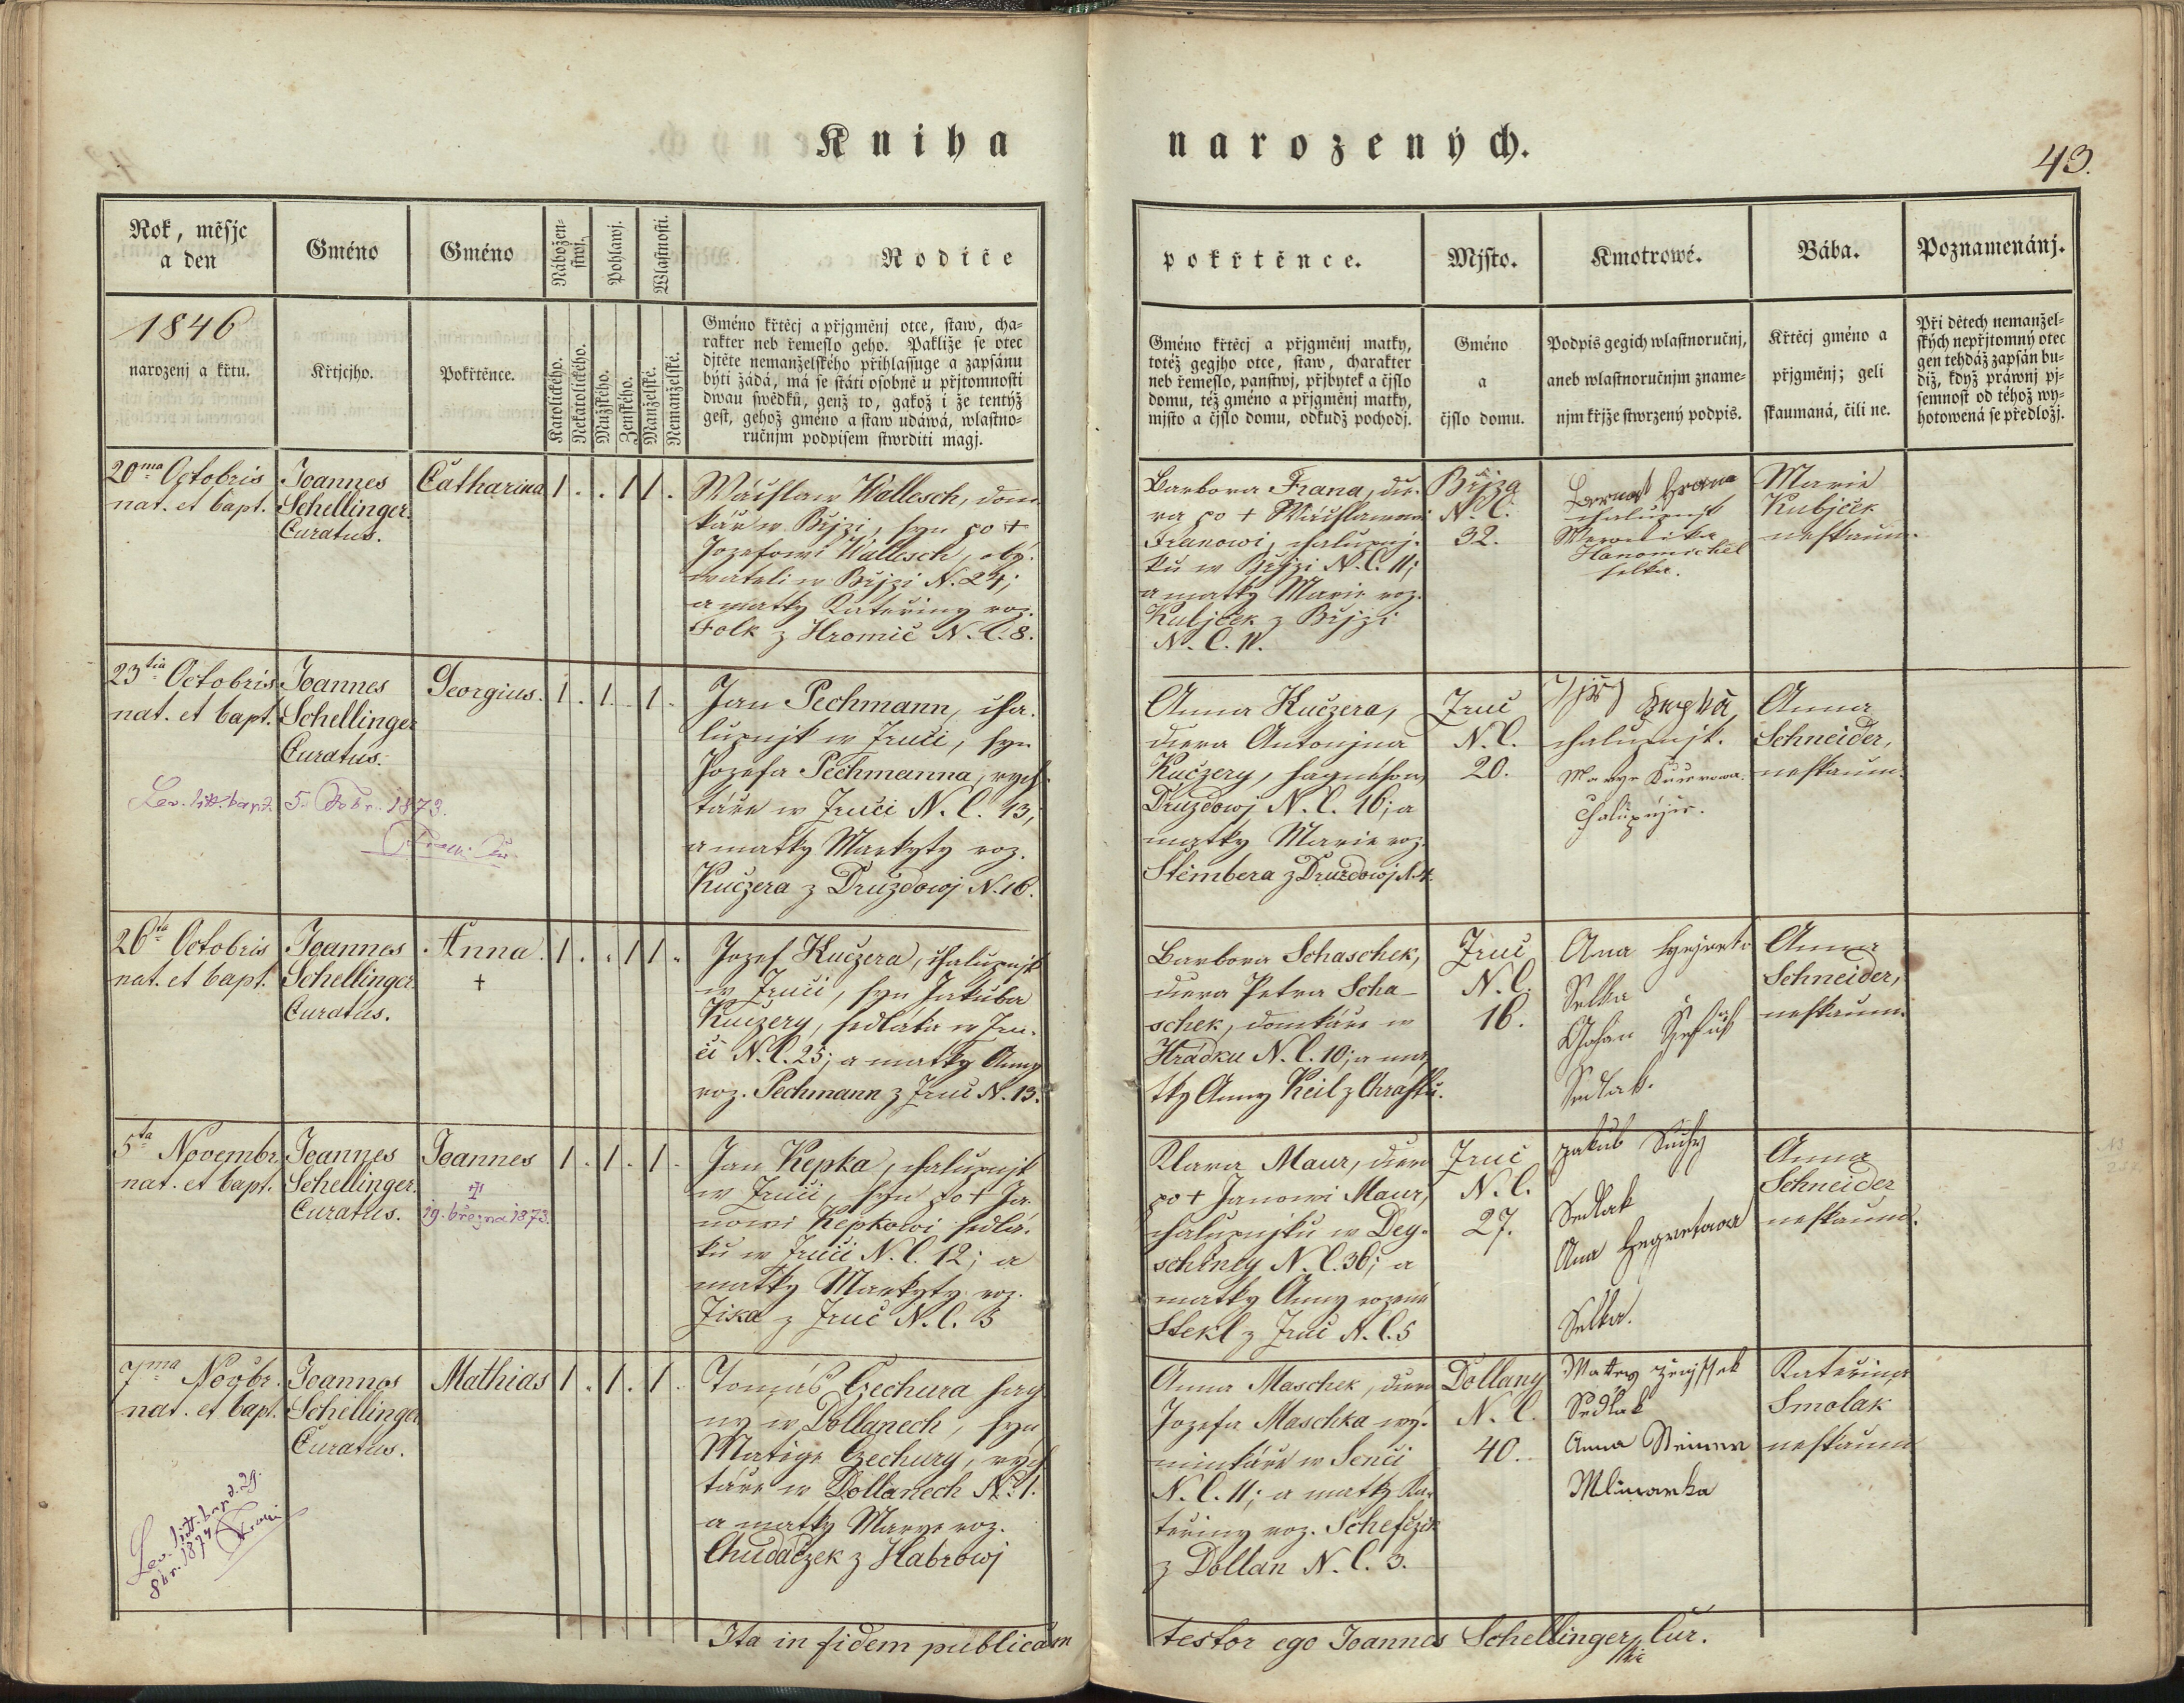 Kniha
narozených.
43.
Rok, měsjc
a den
Gméno
Gméno
Nábožen-
stwj.
Pohlawj.
Wlastnosti.
Rodiče
1846
narozenj a křtu.
Křtjcjho.
Pokřtěnce.
Katolického.
Nekatolického.
Mužského.
Ženského.
Manželské.
Nemanželské.
Gméno křtěcj a přjgměnj otce, staw, cha-
rakter neb řemeslo geho. Pakliže se otec
djtěte nemanželského přihlassuge a zapsánu
býti žádá, má se státi osobně u přjtomnosti
dwau swědků, genž to, gakož i že tentýž
gest, gehož gméno a staw udáwá, wlastno-
ručnjm podpisem stwrditi magj.
pokřtěnce.
Mjsto.
Kmotrowé.
Bába.
Poznamenánj.
Gméno křtěcj a přjgměnj matky,
totéž gegjho otce, staw, charakter
neb řemeslo, panstwj, přjbytek a čjslo
domu, též gméno a přjgměnj matky,
mjsto a čjslo domu, odkudž pochodj.
Gméno
a
čjslo domu.
Podpis gegich wlastnoručnj,
aneb wlastnoručnjm zname-
njm křjže stwrzený podpis.
Křtěcj gméno a
přjgměnj; geli
skaumaná, čili ne.
Při dětech nemanžel-
ských nepřjtomný otec
gen tehdáž zapsán bu-
diž, když práwnj pj-
semnost od téhož wy-
hotowená se předložj.
20ma Octobris
nat. et bapt.
Joannes
Schellinger
Curatus.
Catharina
1 . . 1 1 .
Wácslaw Wallesch, dom-
kář w Břjzi, syn po +
Jozefowi Wallesch, oby-
wateli w Břjzi N. 24;
a matky Kateřiny roz.
Folk z Hromic N. C. 8.
Barbora Frana, dce-
ra po + Wácslawowi
Franowi, chalupnj-
ku w Břjzi N. C. 11;
a matky Marie roz.
Kubjček z Břjzi
N. C. 11.
Břjza
N. C.
32.
chalupnjk
Weronika
Hanomichel
selka.
Marie
Kubjček
neskaum.
23tia Octobris
nat. et bapt.
Joannes
Schellinger
Curatus.
Georgius.
1 . 1 . 1 .
Lev. litt. bapt. 5. Febr. 1873.
Jan Pechmann, cha-
lupnjk w Zruči, syn
Jozefa Pechmanna, rych-
táře w Zruči N. C. 13,
a matky Markyty roz.
Kučzera z Druzdowj N. 16.
Anna Kuczera,
dcera Antonjna
Kučzery,
Druzdowj N. C. 16; a
matky Marie roz.
Stěmbera z Druzdowj
Zruč
N. C.
20.
chalupnjk.
Marye Kucerowa
Anna
Schneider,
neskaum.
26ta Octobris
nat. et bapt.
Joannes
Schellinger
Curatus.
Anna.
+
1 . . 1 1 .
Jozef Kuczera, chalupnjk
w Zruči, syn Jakuba
Kuczery, sedláka w Zru-
či N. C. 25; a matky Anny
roz. Pechmann z Zruč N. 13.
Barbora Schaschek,
dcera Petra Scha-
schek, domkáře w
Hrádku N. C. 10; a ma-
tky Anny Keil z Chrástu.
Zruč
N. C.
16.
Ana
Selka
Sedlak.
Anna
Schneider,
neskaum.
5ta Novembr.
nat. et bapt.
Joannes
Schellinger.
Curatus.
Joannes
+
19. března 1873.
1 . 1 . 1 .
Jan Kepka, chalupnjk
w Zruči, syn po + Ja-
nowi Kepkowi sedlá-
ku w Zruči N. C. 12; a
matky Markyty roz.
Zika z Zruč N. C. 3
Klara Maur, dcera
po + Janowi Maur,
chalupnjku w Dey-
schiney N. C. 36; a
matky Anny rozené
Stekl z Zruč N. C. 5
Zruč
N. C.
27.
Jakub Suchy
Sedlak
Ana Hegretowa
Selka.
Anna
Schneider
neskaum.
7ma Novbr.
nat. et bapt.
Joannes
Schellinger
Curatus.
Mathias
1 . 1 . 1 .
Lev. litt. bapt. 29.
8br. 1874
Tomáš Czechura
w Dollanech, syn
Matěge Czechury, rych-
táře w Dollanech N. 1.
a matky Marye roz.
Chudačzek z Habrowj
Anna Maschek, dcera
Jozefa Maschka wý-
minkáře w Senci
N. C. 11; a matky Ka-
teřiny roz. Schefczik
z Dollan N. C. 3.
Dollany
N. C.
40.
Sedlak
Anna Steiner
Mlinarka
Kateřina
Smolak
neskaum
Ita in fidem publicam
testor ego Joannes Schellinger Cur.